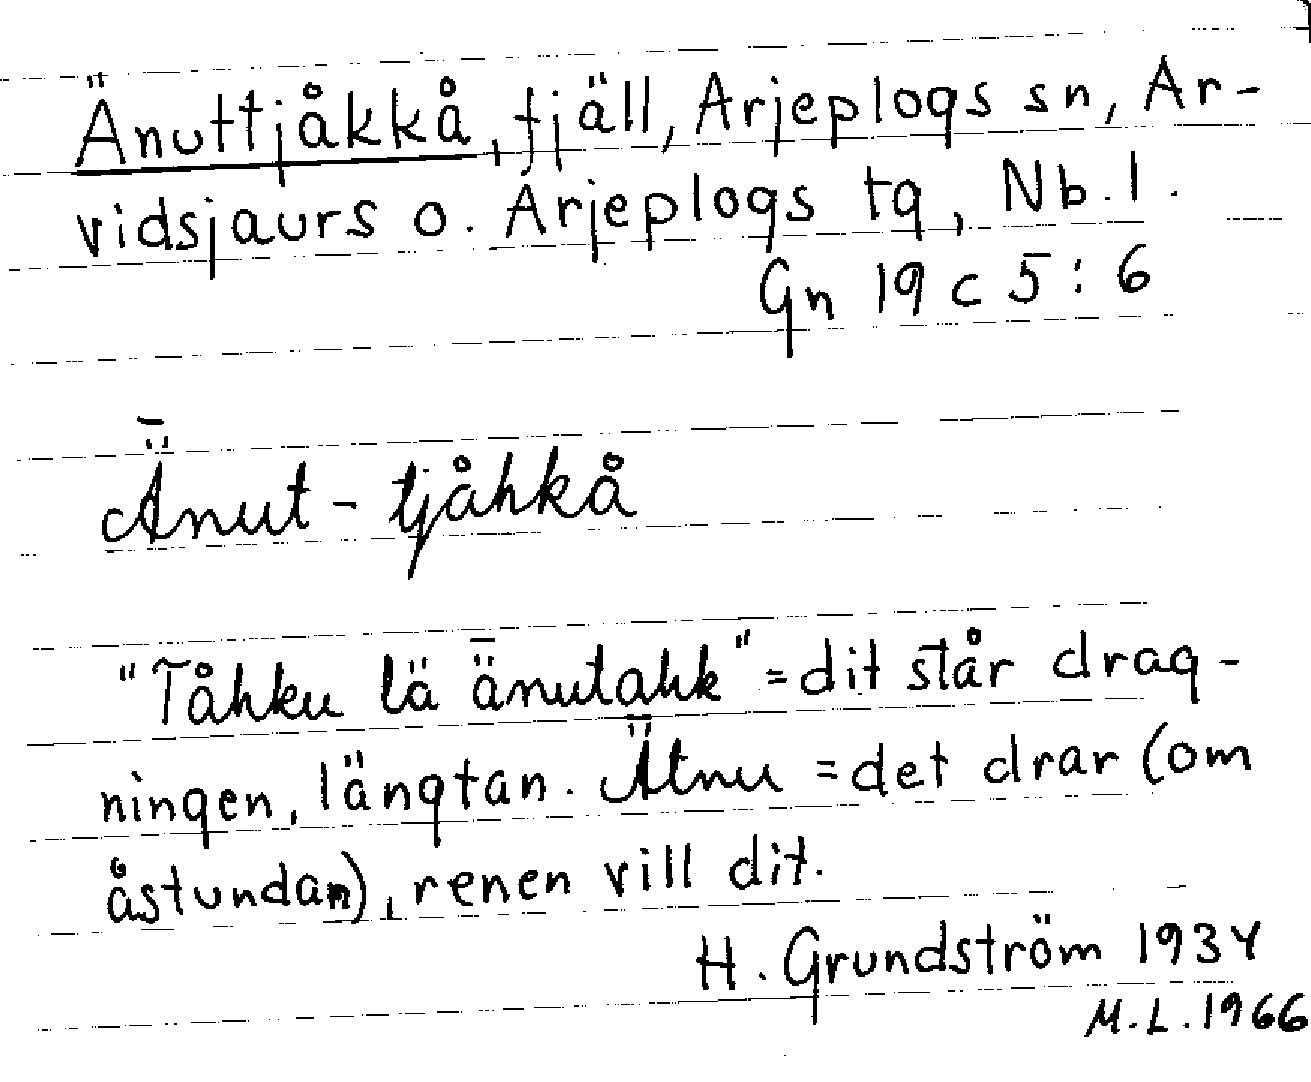 Änuttjåkkå, fjäll, Arjeplogs sn, Ar-
vidsjaurs o. Arjeplogs tg, Nb. l.
Gn 19 c 5 : 6
Ǟnut - tjåhkå
"Tåhku lä ǟnutahk" = dit står drag-
ningen, längtan. Ǟtnu = det drar (om
åstundan), renen vill dit.
H. Grundström 1934
M.L. 1966